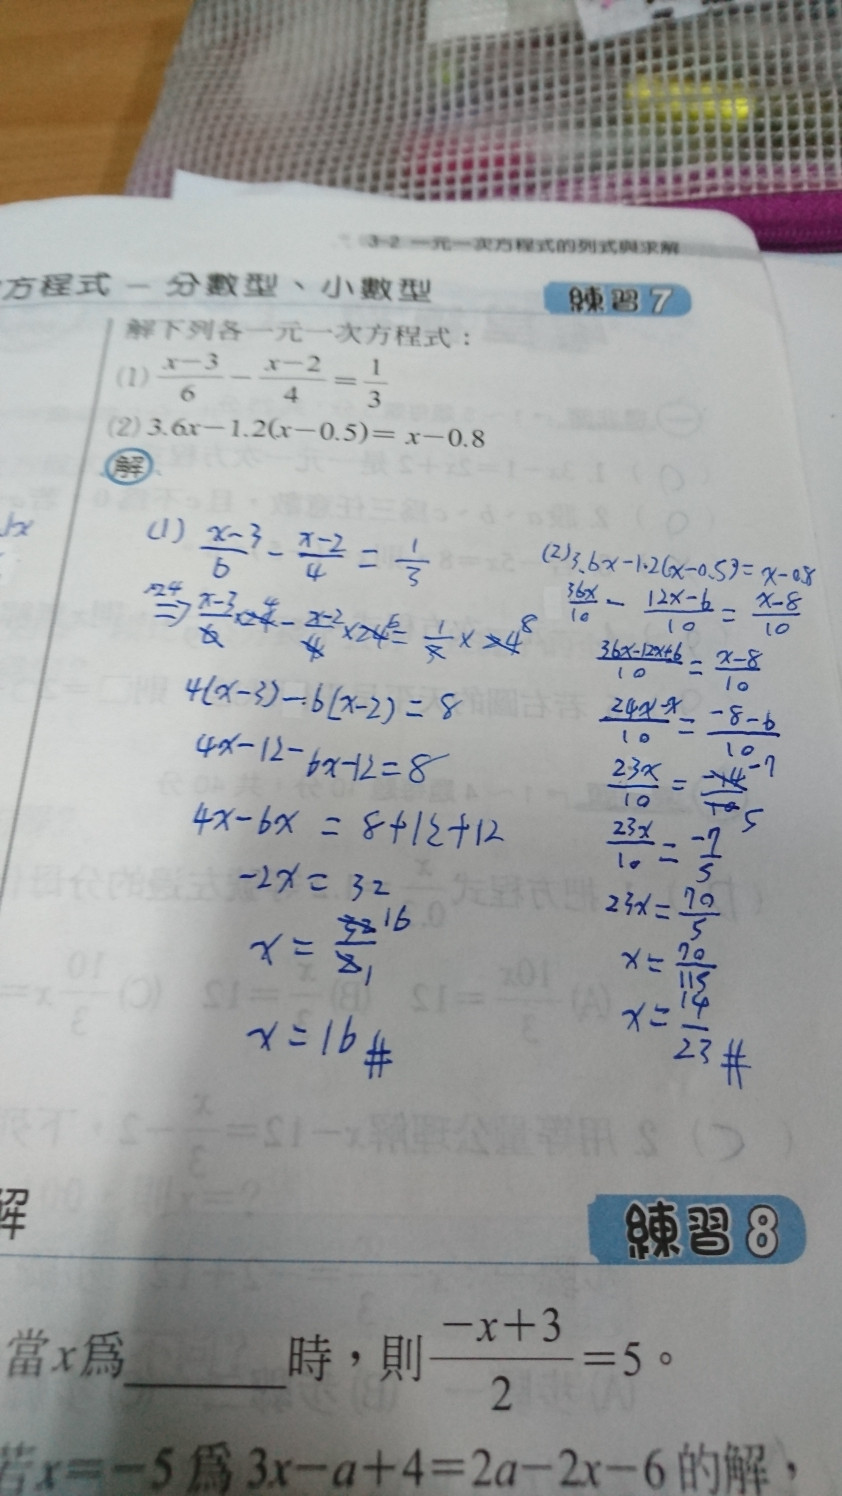 3-2 一元一次方程式的列式與求解
方程式－分數型、小數型
練習7
解下列各一元一次方程式：
(1) \frac{x-3}{6} - \frac{x-2}{4} = \frac{1}{3}
(2) 3.6x-1.2(x-0.5)= x-0.8
解
(1) \frac{x-3}{6} - \frac{x-2}{4} = \frac{1}{3}
×24 ⇒ \frac{x-3}{6}×24 4 - \frac{x-2}{4}×24 6 = \frac{1}{3}×24 8
4(x-3)-6(x-2)=8
4x-12-6x-12=8
4x-6x = 8+12+12
-2x = 32
x = \frac{32}{2} 16 1
x = 16 #
(2) 3.6x-1.2(x-0.5)= x-0.8
\frac{36x}{10} - \frac{12x-6}{10} = \frac{x-8}{10}
\frac{36x-12x+6}{10} = \frac{x-8}{10}
\frac{24x-x}{10} = \frac{-8-6}{10}
\frac{23x}{10} = \frac{-14}{10} -7 5
\frac{23x}{10} = \frac{-7}{5}
23x = \frac{70}{5}
x = \frac{70}{115}
x = \frac{14}{23} #
解
練習8
當x為＿＿＿時，則 \frac{-x+3}{2} =5。
若x=-5為3x-a+4=2a-2x-6的解，